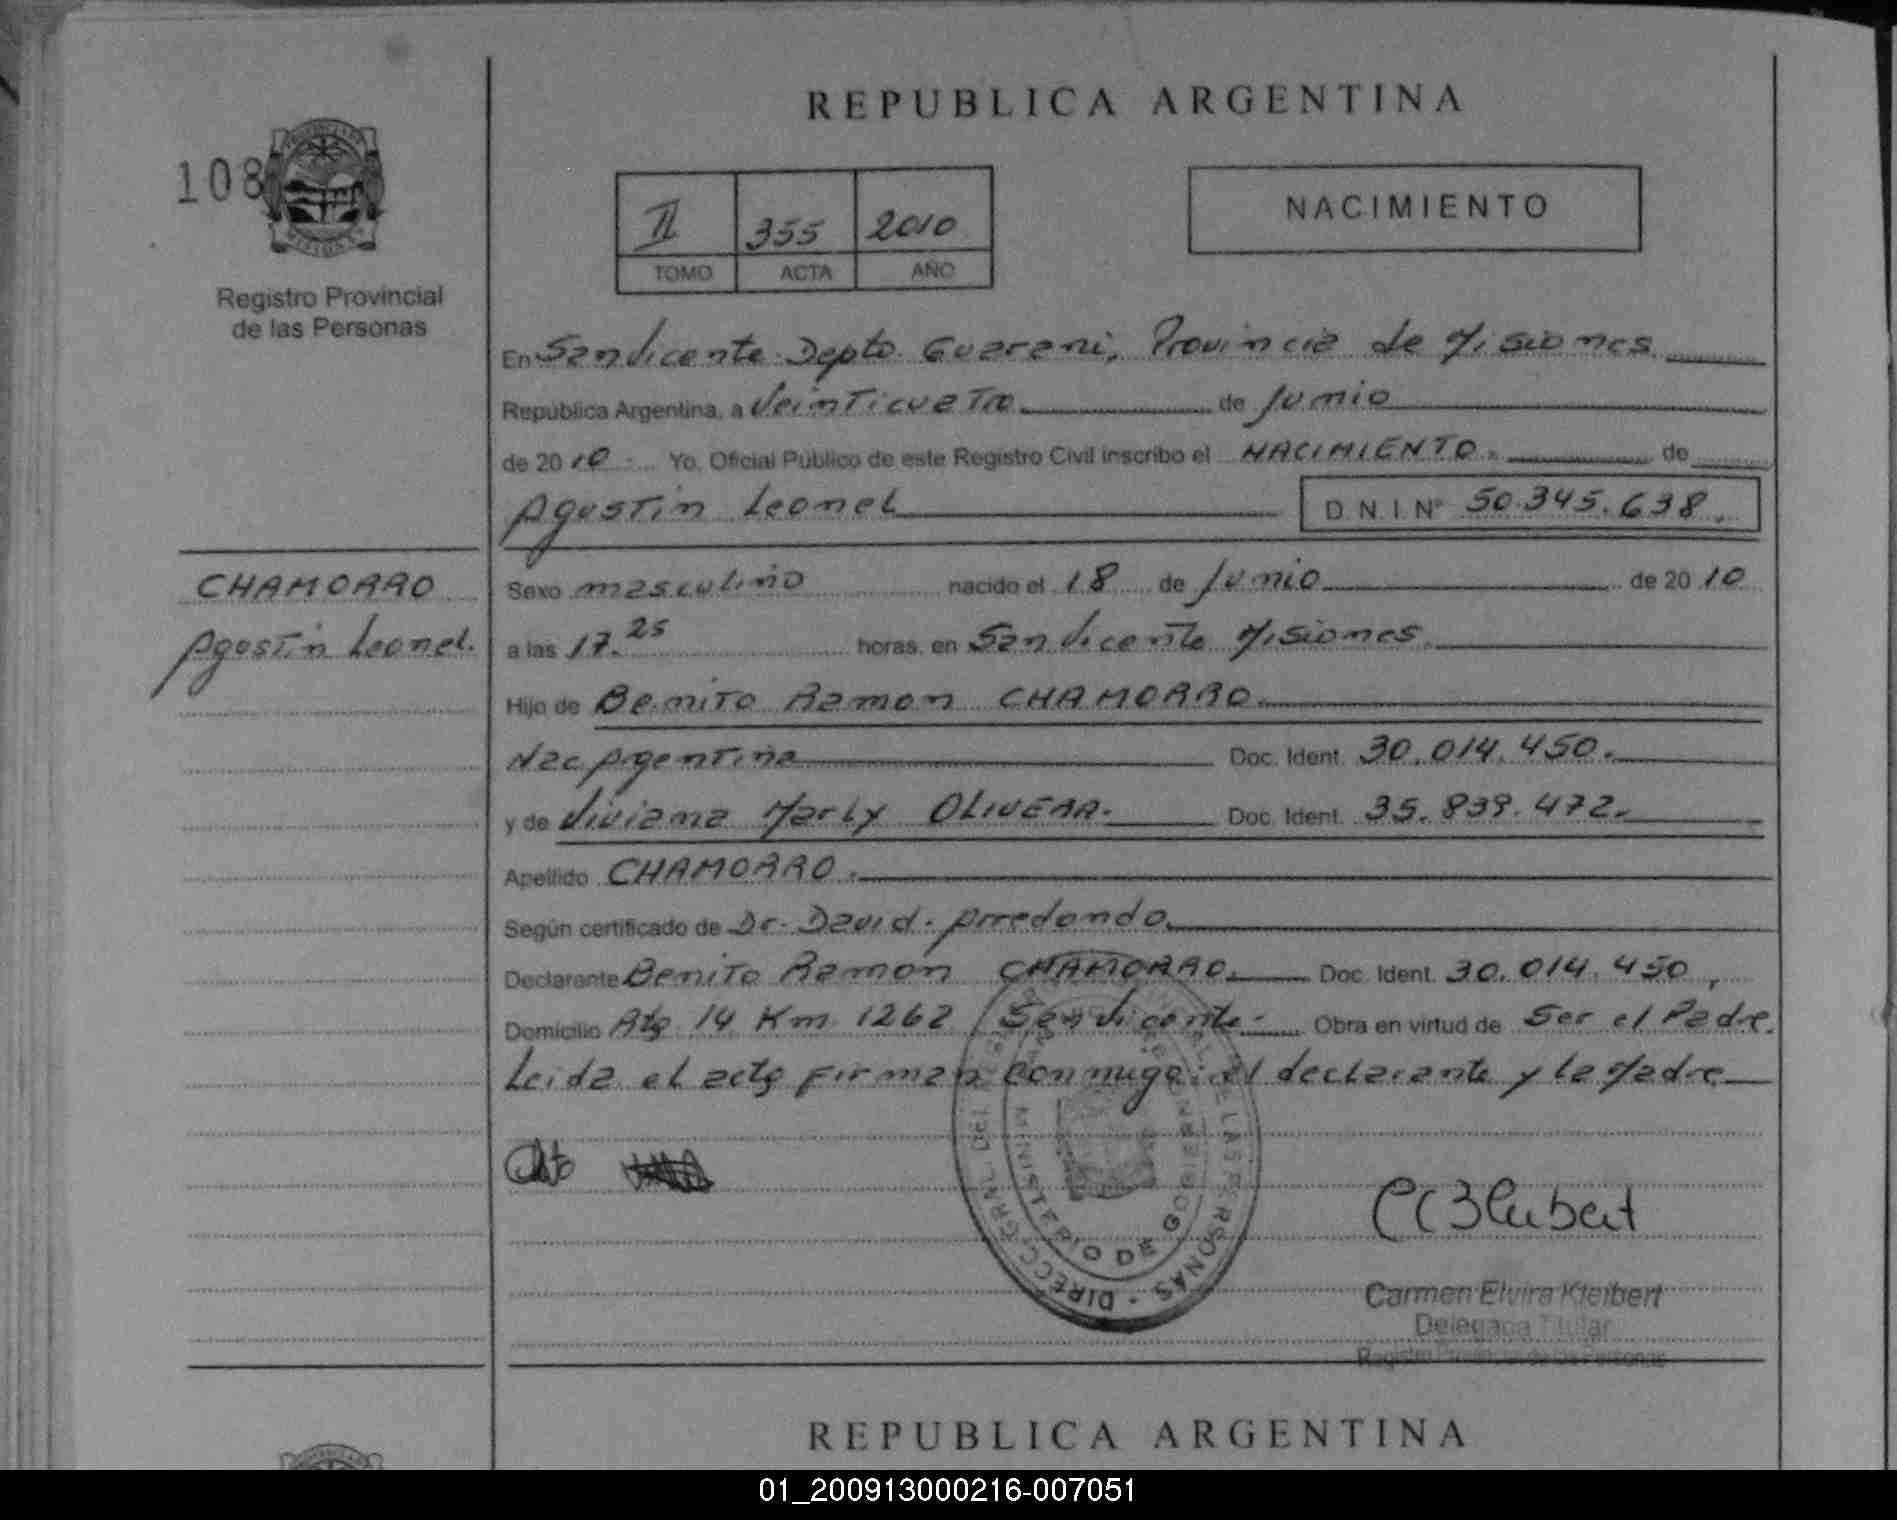 REPUBLICA ARGENTINA
108
Registro Provincial
de las Personas
II 355 2010
TOMO ACTA AÑO
NACIMIENTO
En San Vicente Depto Guarani, Provincia de Misiones
República Argentina, a Veinticuatro de Junio
de 2010 Yo, Oficial Público de este Registro Civil inscribo el NACIMIENTO. de
Agustin Leonel D.N.I. Nº 50.345.638.
CHAMORRO
Agustin Leonel.
Sexo masculino nacido el 18 de Junio de 2010
a las 17.25 horas, en San Vicente Misiones.
Hijo de Benito Ramon CHAMORRO.
Nac Agentina Doc. Ident. 30.014.450.
y de Viviana Marly OLIVERA. Doc. Ident. 35.839.472.
Apellido CHAMORRO.
Según certificado de Dr. David. Arredondo.
Declarante Benito Ramon CHAMORRO. Doc. Ident. 30.014.450,
Domicilio Km 1262 San Vicente. Obra en virtud de Ser el Padre.
Leida el acta firman conmigo: el declarante y la Madre
DIRECC. GRAL. DEL LAS PERSONAS
MINISTERIO DE GOBIERNO
Carmen Elvira Kleibert
Delegada Titular
Registro Provincial de las Personas
REPUBLICA ARGENTINA
01_200913000216-007051